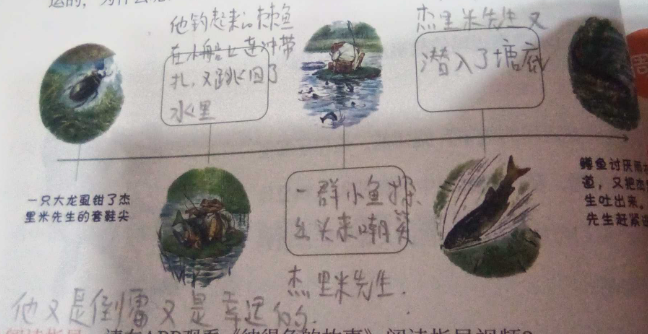 他钓起来的棘鱼
在小船上连冲带
扎，又跳回了
水里
杰里米先生又
潜入了塘底
一只大龙虱钳了杰
里米先生的套鞋尖
一群小鱼探
出头来嘲笑
杰里米先生.
鳟鱼讨厌雨
道，又把杰
生吐出来。
先生赶紧
他又是倒霉又是幸运的.
请在APP观看《彼得兔的故事》阅读指导视频